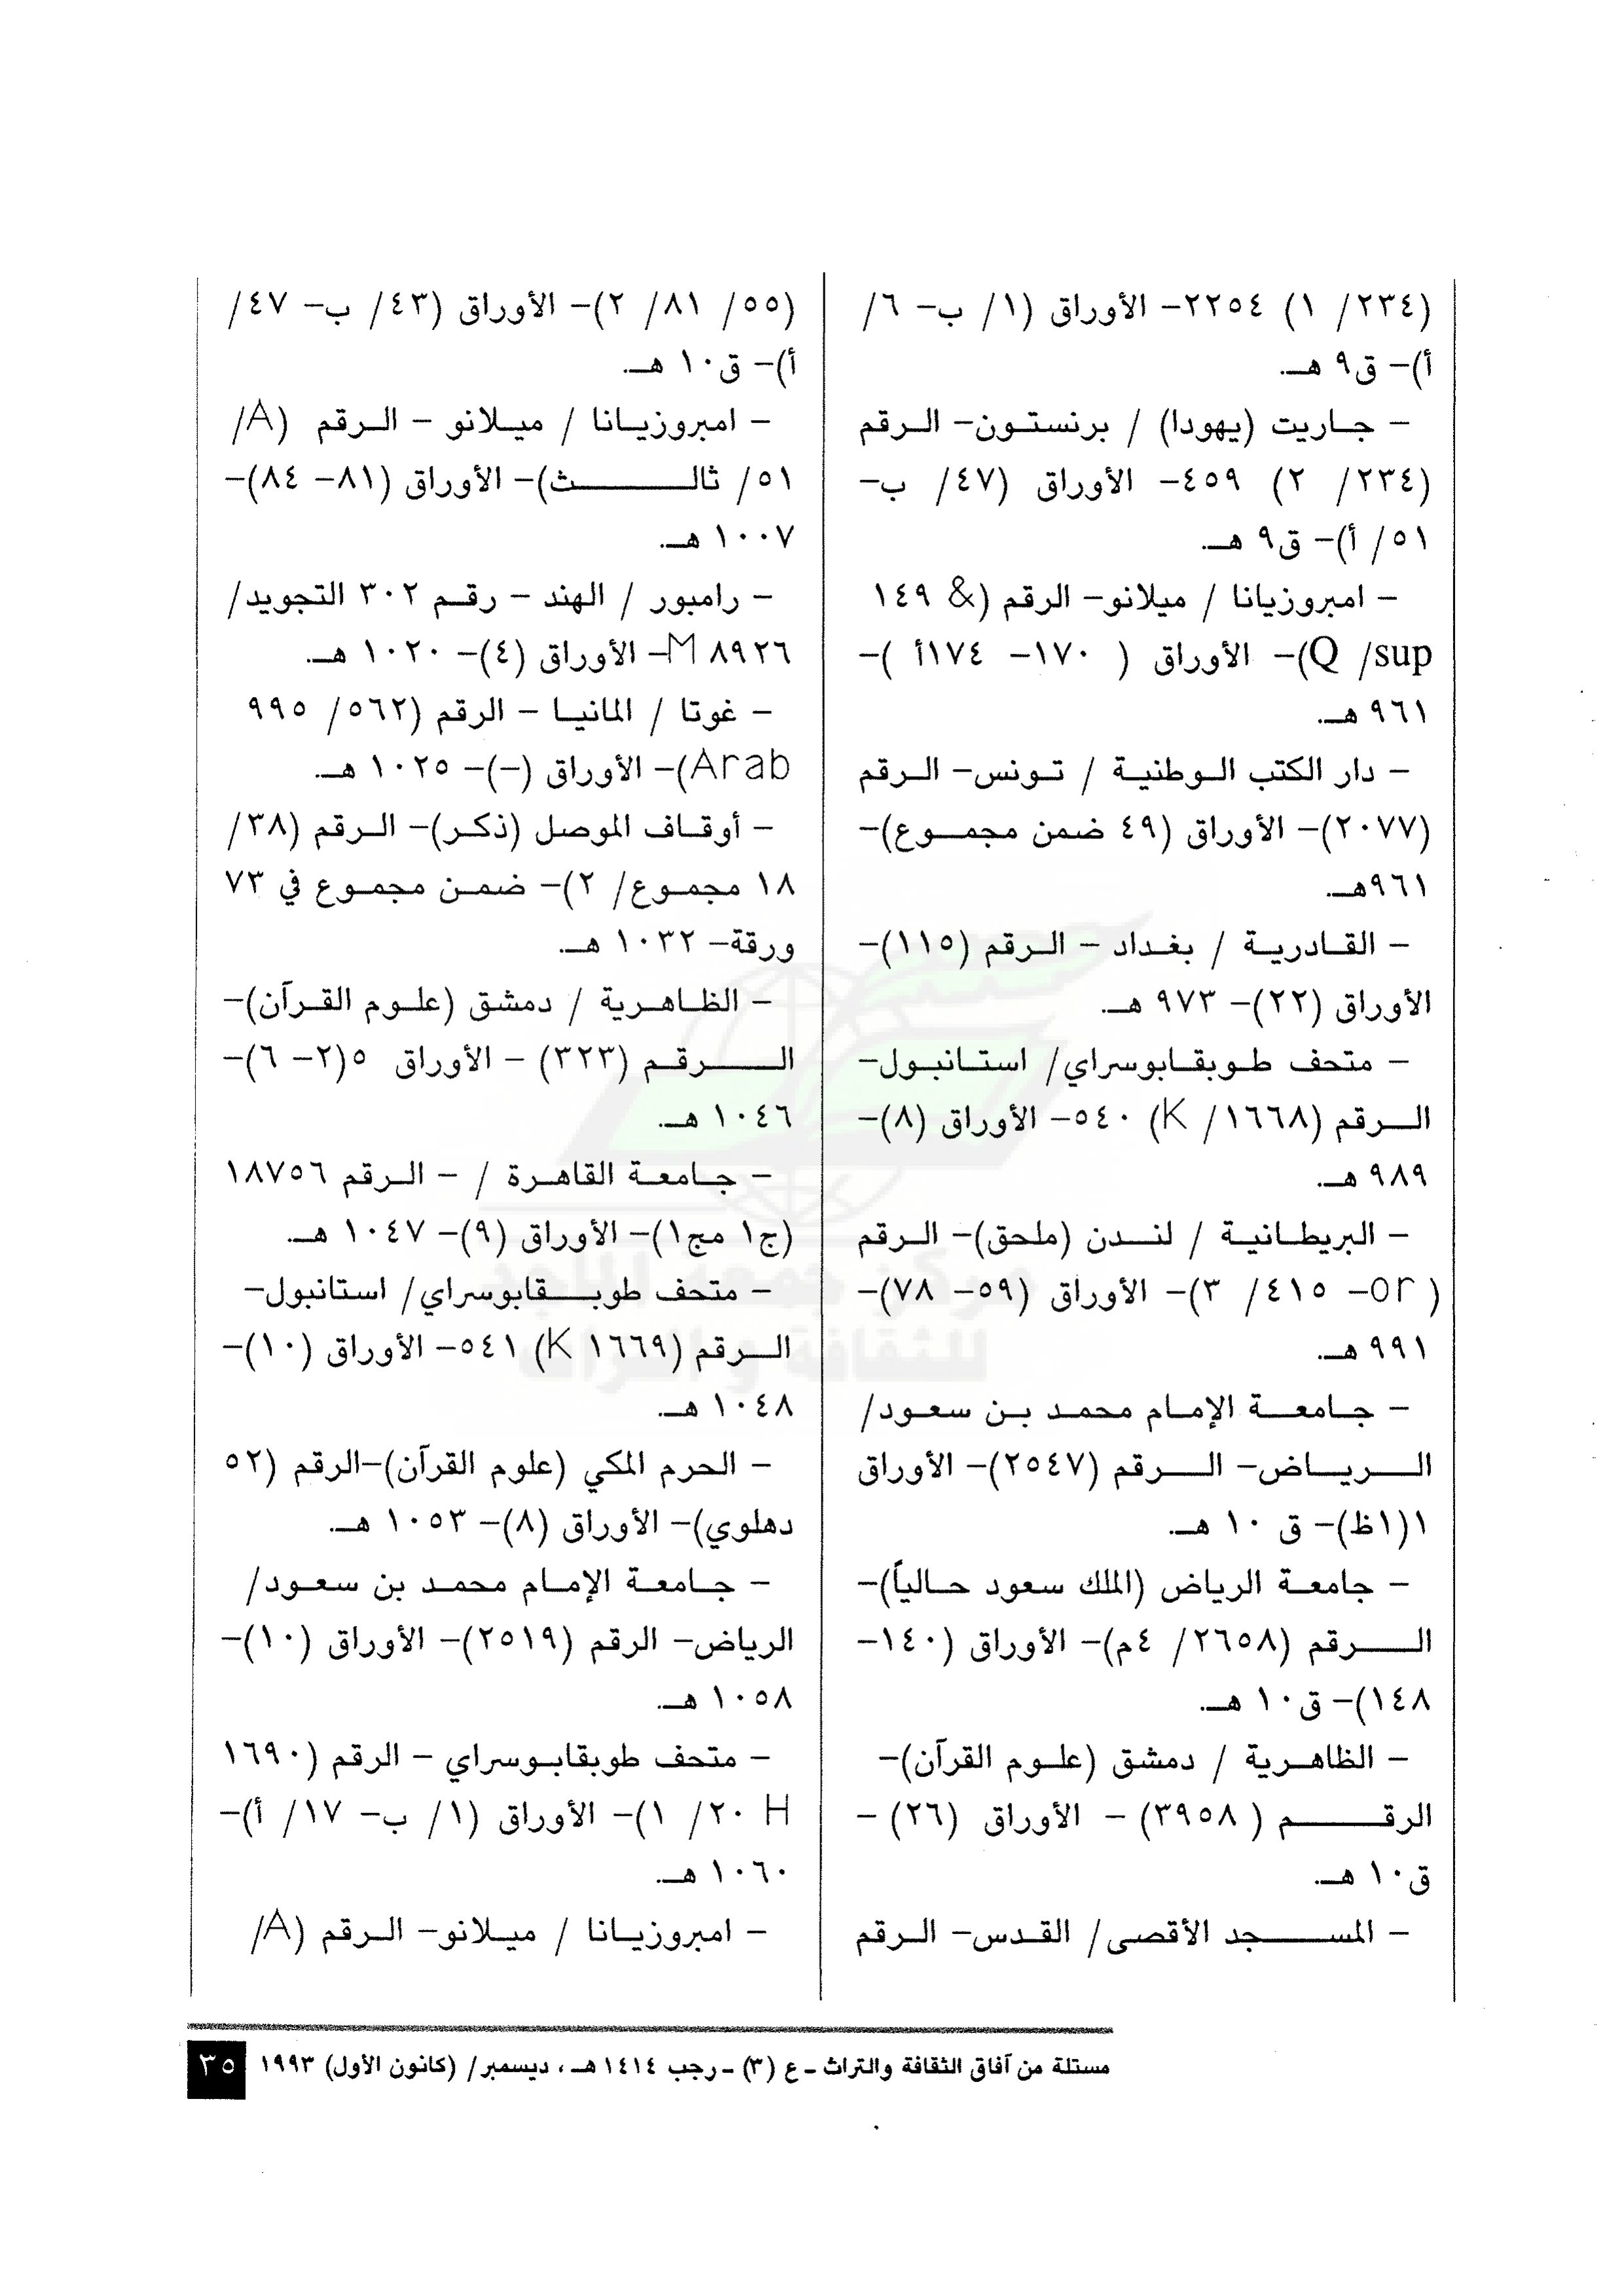 (٢٣٤/ ١) ٢٢٥٤- الأوراق (١/ ب- ٦/
أ)- ق٩ هـ.
- جاريت (يهودا) / برنستون- الرقم
(٢٣٤/ ٢) ٤٥٩- الأوراق (٤٧/ ب-
٥١/ أ)- ق٩ هـ.
- امبروزيانا / ميلانو- الرقم (& ١٤٩
Q /sup)- الأوراق ( ١٧٠- ١٧٤أ )-
٩٦١ هـ.
- دار الكتب الوطنية / تونس- الرقم
(٢٠٧٧)- الأوراق (٤٩ ضمن مجموع)-
٩٦١هـ.
- القادرية / بغداد - الرقم (١١٥)-
الأوراق (٢٢)- ٩٧٣ هـ.
- متحف طوبقابوسراي/ استانبول-
الرقم (K /١٦٦٨) ٥٤٠- الأوراق (٨)-
٩٨٩ هـ.
- البريطانية / لندن (ملحق)- الرقم
( or- ٤١٥/ ٣)- الأوراق (٥٩- ٧٨)-
٩٩١ هـ.
- جامعة الإمام محمد بن سعود/
الرياض- الرقم (٢٥٤٧)- الأوراق
١(١ظ)- ق ١٠ هـ.
- جامعة الرياض (الملك سعود حالياً)-
الرقم (٢٦٥٨/ ٤م)- الأوراق (١٤٠-
١٤٨)- ق١٠ هـ.
- الظاهرية / دمشق (علوم القرآن)-
الرقم ( ٣٩٥٨) - الأوراق (٢٦) -
ق١٠ هـ.
- المسجد الأقصى/ القدس- الرقم
(٥٥/ ٨١/ ٢)- الأوراق (٤٣/ ب- ٤٧/
أ)- ق١٠ هـ.
- امبروزيانا / ميلانو - الرقم (A/
٥١/ ثالث)- الأوراق (٨١- ٨٤)-
١٠٠٧ هـ.
- رامبور / الهند - رقم ٣٠٢ التجويد/
M ٨٩٢٦- الأوراق (٤)- ١٠٢٠ هـ.
- غوتا / المانيا - الرقم (٥٦٢/ ٩٩٥
Arab)- الأوراق (-)- ١٠٢٥ هـ.
- أوقاف الموصل (ذكر)- الرقم (٣٨/
١٨ مجموع/ ٢)- ضمن مجموع في ٧٣
ورقة- ١٠٣٢ هـ.
- الظاهرية / دمشق (علوم القرآن)-
الرقم (٣٢٣) - الأوراق ٥(٢- ٦)-
١٠٤٦ هـ.
- جامعة القاهرة / - الرقم ١٨٧٥٦
(ج١ مج١)- الأوراق (٩)- ١٠٤٧ هـ.
- متحف طوبقابوسراي/ استانبول-
الرقم (K ١٦٦٩) ٥٤١- الأوراق (١٠)-
١٠٤٨ هـ.
- الحرم المكي (علوم القرآن)-الرقم (٥٢
دهلوي)- الأوراق (٨)- ١٠٥٣ هـ.
- جامعة الإمام محمد بن سعود/
الرياض- الرقم (٢٥١٩)- الأوراق (١٠)-
١٠٥٨ هـ.
- متحف طوبقابوسراي - الرقم (١٦٩٠
H ٢٠/ ١)- الأوراق (١/ ب- ١٧/ أ)-
١٠٦٠ هـ.
- امبروزيانا / ميلانو- الرقم (A/
مستلة من آفاق الثقافة والتراث ـ ع (٣) ـ رجب ١٤١٤ هـ، ديسمبر/ (كانون الأول) ١٩٩٣ ٣٥
مركز جمعة الماجد
للثقافة والتراث